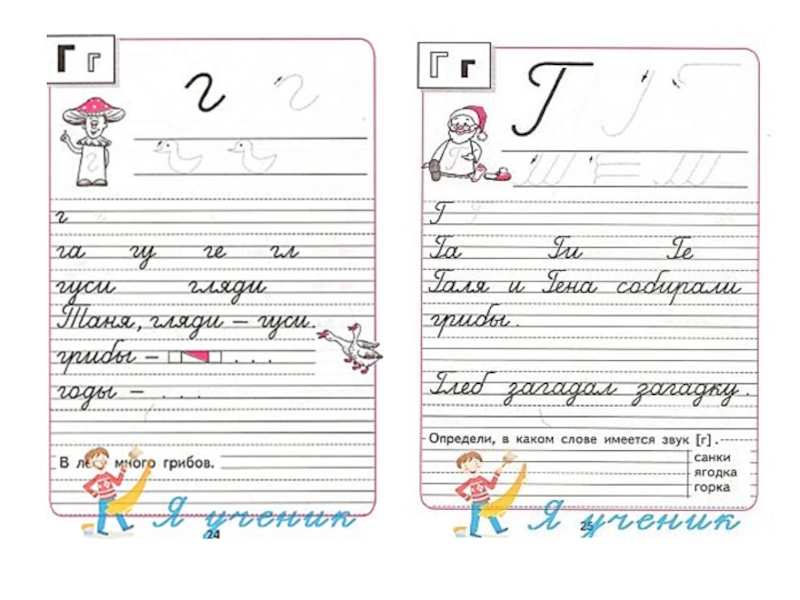 Г г
г г
г
г
га гу ге гл
гуси гляди
Таня, гляди – гуси.
грибы – . . .
годы – . . .
В лесу много грибов.
Я ученик
24
Г г
Г
Г
Г
Га Ги Ге
Галя и Гена собирали
грибы.
Глеб загадал загадку.
Определи, в каком слове имеется звук [г].
санки
ягодка
горка
Я ученик
25